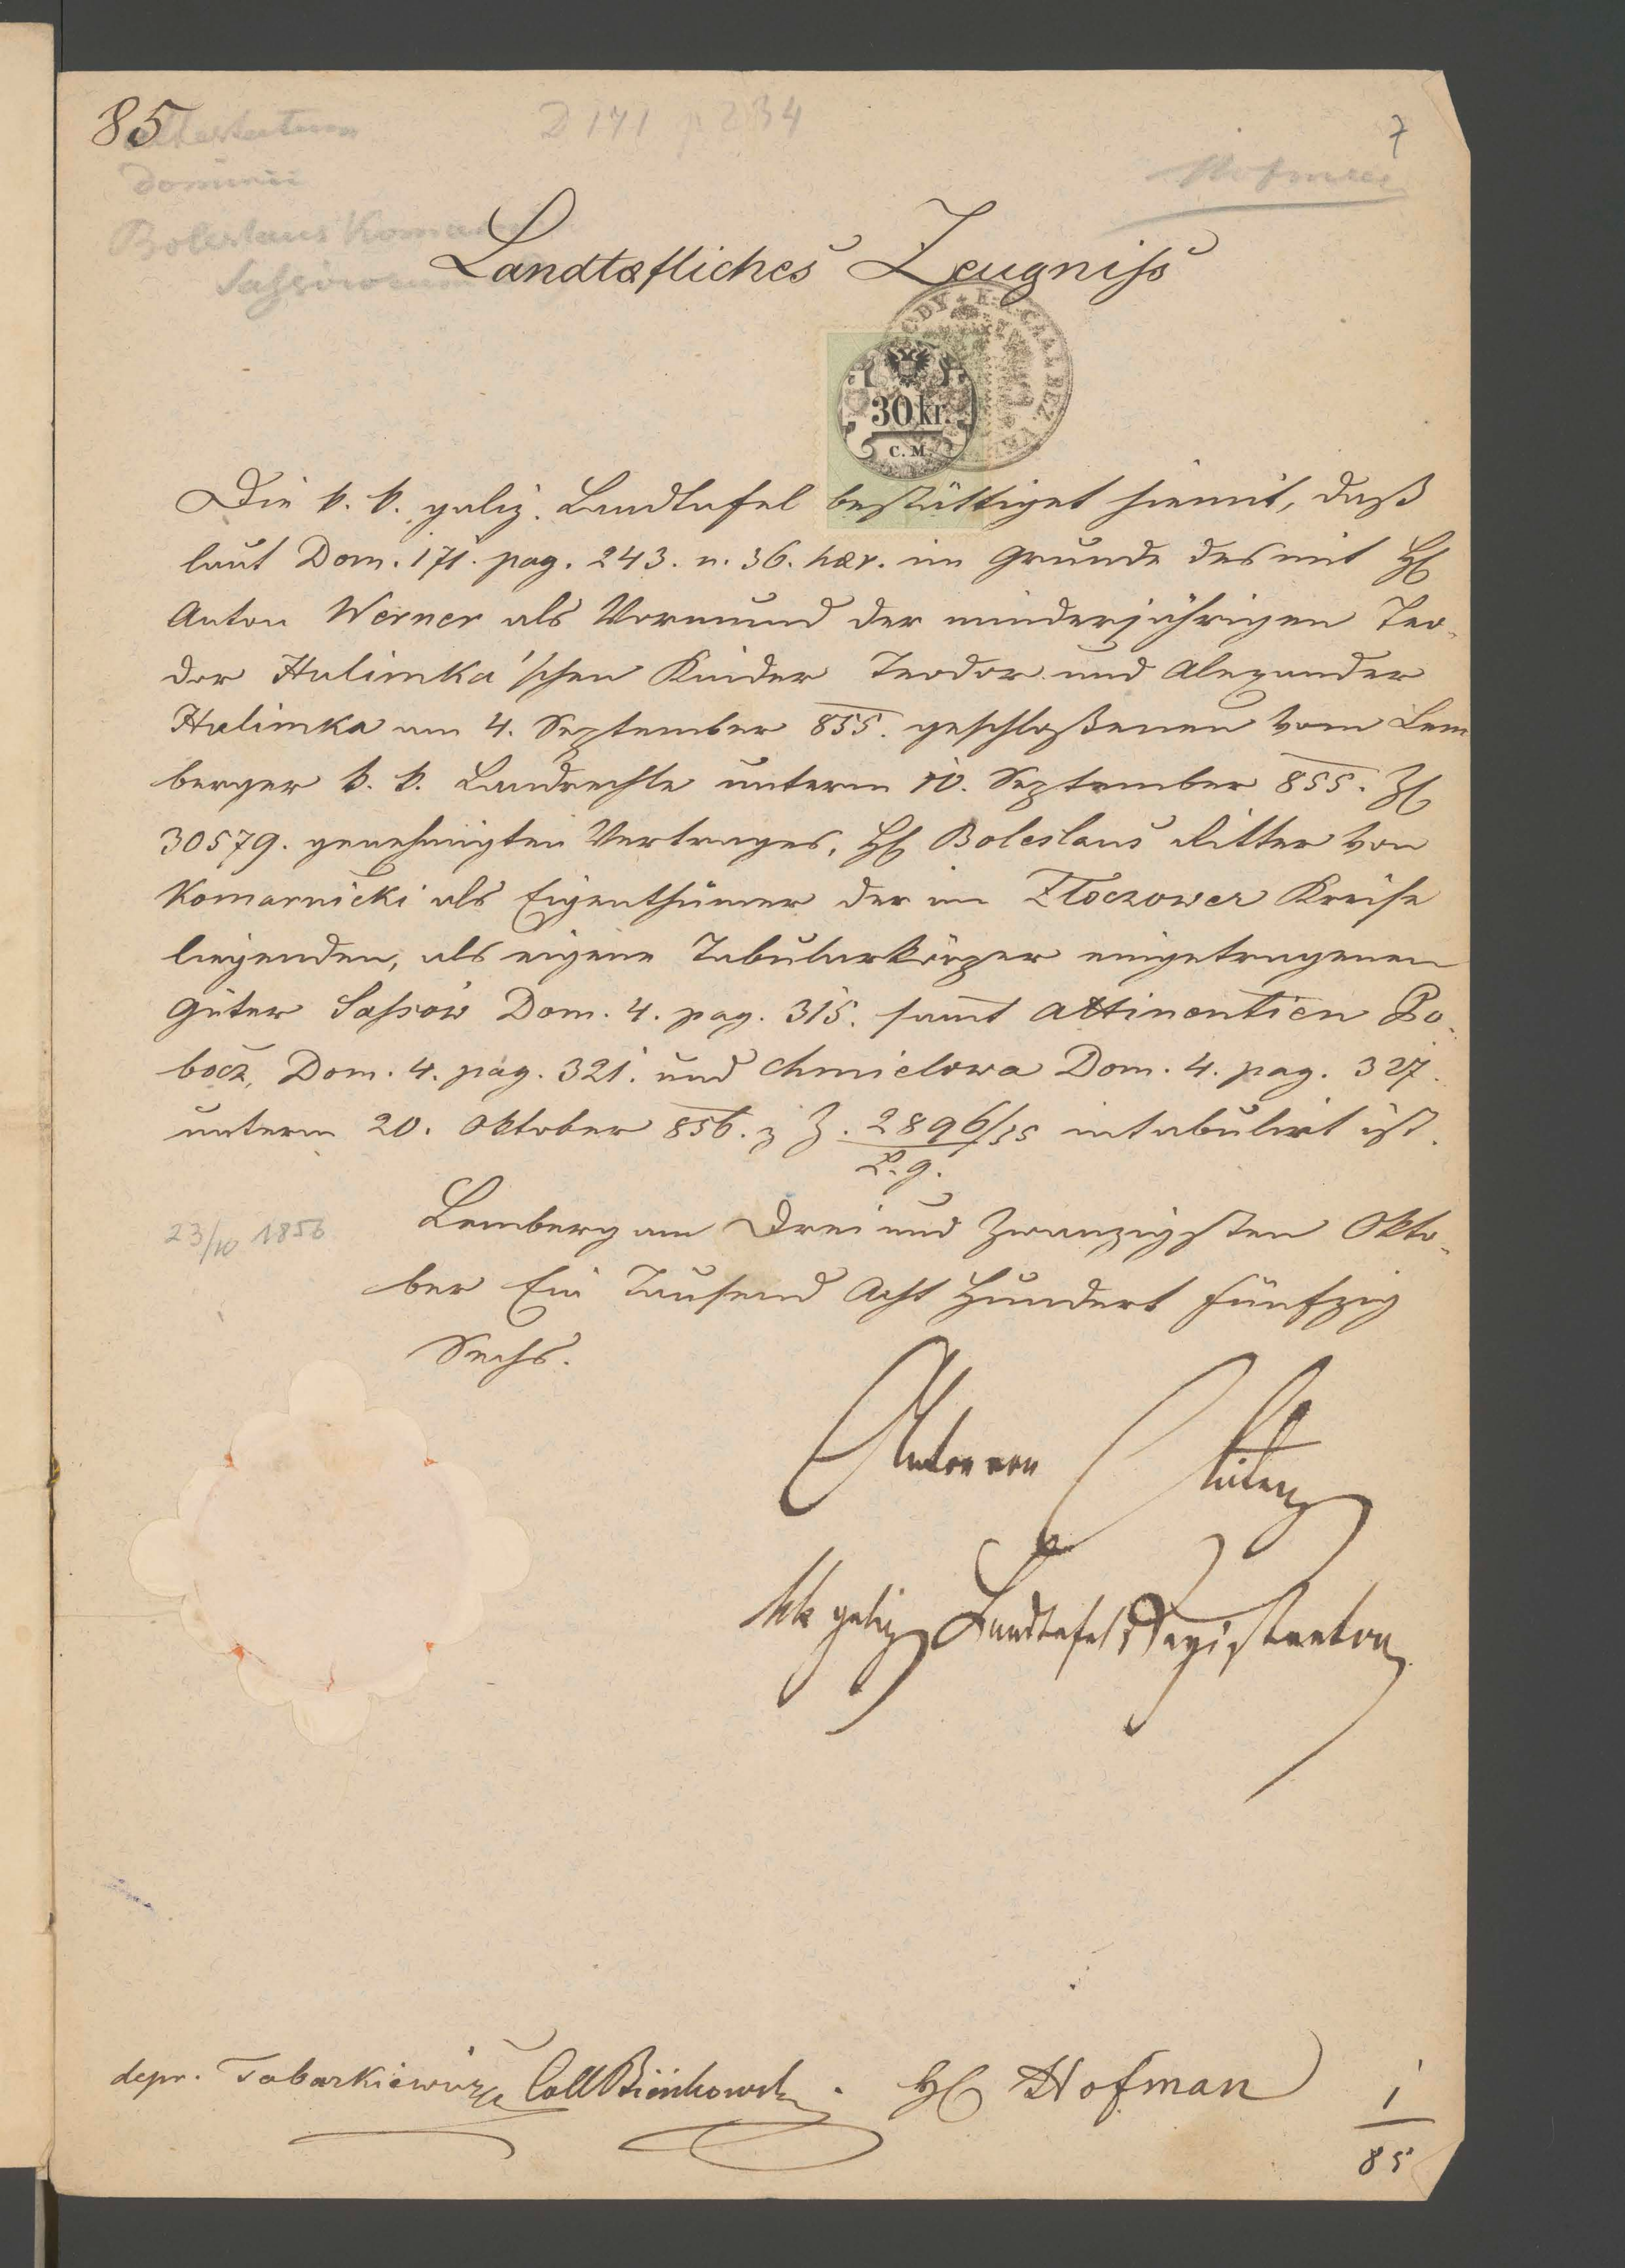 85
D 171 p 234
7
Attestatum
Dominii
Boleslaus Komar
Sassowium
Hofman
Landtafliches Zeugniss
30 kr.
C. M.
Die k. k. galiz. Landtafel bestättiget hiemit, daß
laut Dom. 171. pag. 243. n. 36. hær. im Grunde des mit H
Anton Werner als Vormund der minderjährigen Teo-
dor Hulimka'schen Kinder Teodor und Alexander
Hulimka am 4. September 855. geschloßenen vom Lem
berger k. k. Landrechte unterm 10. September 855. Zl
30579. genehmigten Vertrages, H Boleslaus Ritter von
Komarnicki als Eigenthümer der im Złoczower Kreise
liegenden, als eigene Tabularkörper eingetragenen
Güter Sassów Dom. 4. pag. 315. samt Attinentien Po-
bocz, Dom. 4. pag. 321. und Chmielowa Dom. 4. pag. 327.
unterm 20. Oktober 856. z Z. 2896/35 intabulirt ist.
L. g.
23/10 1856
Lemberg am Drei und Zwanzigsten Okto-
ber Ein Tausend Acht Hundert Fünfzig
Sechs.
Anton von
kk galiz Landtafel Registrator
depr. Tabarkiewicz Coll Bieńkowski. H Hofman
1
85